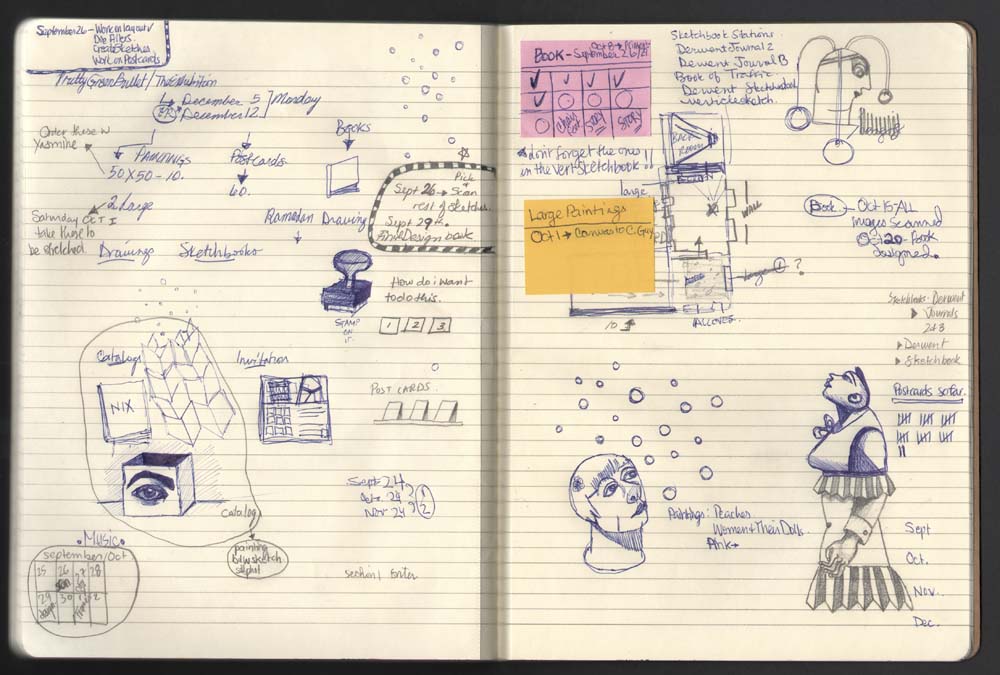 September 26 - Work on layout
Do Fliers
Create Sketches
Work on Postcards
Pretty Green Bullet /
December 5
OR December 12
Monday
Order these w
Yasmine
PAINTINGS
50 x 50 - 10.
2 large
Postcards
60.
Books
Saturday OCT 1
take these to
be stretched.
Drawings
Sketchbooks
Ramadan Drawing
Pick
Sept 26 → Scan
rest of sketches.
Sept 29th
Final Design book
STAMP
ON
IT.
How do i want
to do this.
1 2 3
Catalogs
NIX
Invitation
POST CARDS
Catalog
Sept 24
Oct. 24
Nov 24
1
2
painting
b/w sketch
Music
September/Oct
25 26 27 28
29 30 1 2
section 1
BOOK - September 26/27
Oct 8 →
Story
* don't forget the ones
in the vert sketchbook !!
Sketchbook Stations
Derwent Journal 2
Derwent Journal B
Book of Traffic
Derwent Sketchbook
BACK
ROOM
large
WALL
Large Paintings
Oct 1 → Canvas to C. Guy
Large 1 ?
10
ALLEYES.
Book - Oct 15 - ALL
images scanned
Oct 20 - Book
designed.
Sketchbooks: Derwent
Journals
2 & 3
Derwent
Sketchbook
Postcards so far.
Paintings: Peaches
Women & Their Dolls
Sept
Oct.
Nov.
Dec.